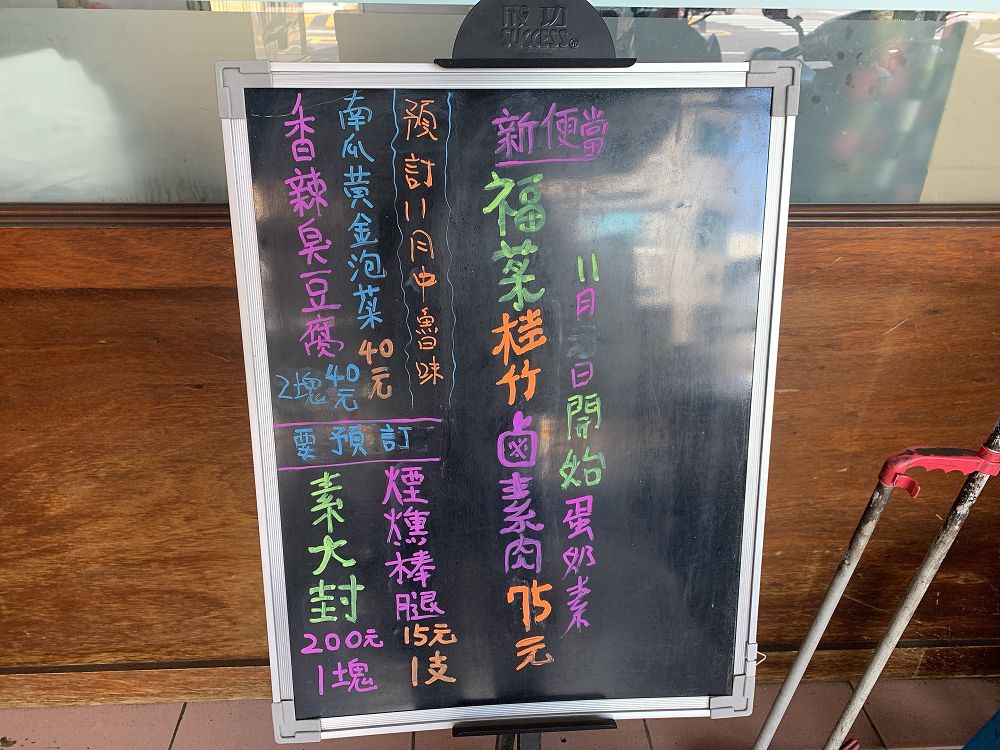 成功
SUCCESS®
新便當
11月 日開始蛋奶素
福菜桂竹卤素肉75元
預訂11月中魯味
南瓜黃金泡菜40元
香辣臭豆腐40元2塊
要預訂
煙燻棒腿15元1支
素大封200元1塊